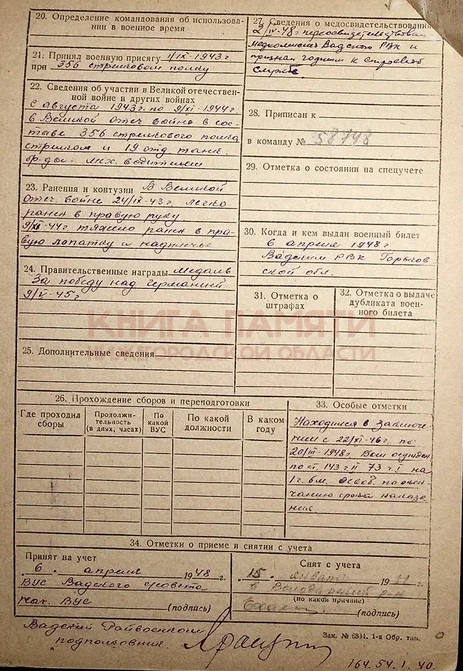 20. Определение командования об использовании в военное время
21. Принял военную присягу 1/IX-1943 г.
при 356 стрелковом полку
22. Сведения об участии в Великой отечественной войне и других войнах
с августа 1943 г. по 9/XI-1944 г.
в Великой Отеч. войне в составе 356 стрелкового полка
стрелком и 19 отд. танк.
мех. водителем
23. Ранения и контузии В Великой
Отеч. войне 24/IX-43 г. легко
ранен в правую руку
9/XI-44 г. тяжело ранен в правую лопатку и надплечье
24. Правительственные награды медаль
За победу над Германией
9/V-45 г.
25. Дополнительные сведения
27. Сведения о медосвидетельствовании
2/IV-48 г. переосвидетельствован
медкомиссией Вадского РВК и
признан годным к строевой
службе
28. Приписан к
в команду № 58748
29. Отметка о состоянии на спецучете
30. Когда и кем выдан военный билет
6 апреля 1948 г.
Вадским РВК Горьковской обл.
31. Отметка о штрафах
32. Отметка о выдаче дубликата военного билета
КНИГА ПАМЯТИ
НИЖЕГОРОДСКОЙ ОБЛАСТИ
26. Прохождение сборов и переподготовки
Где проходил сборы
Продолжительность (в днях, часах)
По какой ВУС
По какой должности
В каком году
33. Особые отметки
Находился в заключении с 22/XI-46 г. по
20/III 1948 г. Был осужден
по ст. 143 ч II 73 ч. I на
1 г. 6 м. Освоб. по окончанию срока наказания
34. Отметки о приеме и снятии с учета
Принят на учет
6 апреля 1948 г.
ВУС Вадского с/совета
нач. ВУС
(подпись)
Снят с учета
15 января 19
в
(по какой причине)
(подпись)
Вадский Райвоенком
подполковник
Зак. № 6331. 1-я Обр. тип.
164.54.1.40